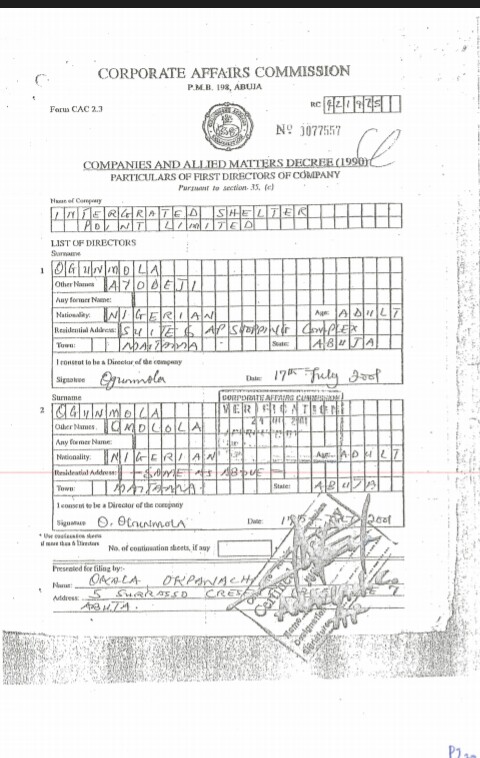 CORPORATE AFFAIRS COMMISSION
P.M.B. 198, ABUJA
Form CAC 2.3
RC
Nº 0077557
COMPANIES AND ALLIED MATTERS DECREE (1990)
PARTICULARS OF FIRST DIRECTORS OF COMPANY
Pursuant to section 35, (c)
Name of Company
INTERGRATED SHELTER
POINT LIMITED
LIST OF DIRECTORS
Surname
1 OGUNMOLA
Other Names AYODEJI
Any former Name:
Nationality: NIGERIAN Age: ADULT
Residential Address: SUITE 6 AP SHOPPING COMPLEX
Town: MAITAMA State: ABUJA
I consent to be a Director of the company
Signature Ogunmola Date: 17th July 2001
Surname
2 OGUNMOLA
CORPORATE AFFAIRS COMMISSION
Other Names OMOLOLA
Any former Name:
Nationality: NIGERIAN Age: ADULT
Residential Address: - SAME AS ABOVE -
Town: MAITAMA State: ABUJA
I consent to be a Director of the company
Signature O. Ogunmola Date: 2001
* Use continuation sheets
if more than 6 Directors
No. of continuation sheets, if any
Presented for filing by:-
Name: OKALA OKPANACHI
Address: 5
ABUJA.